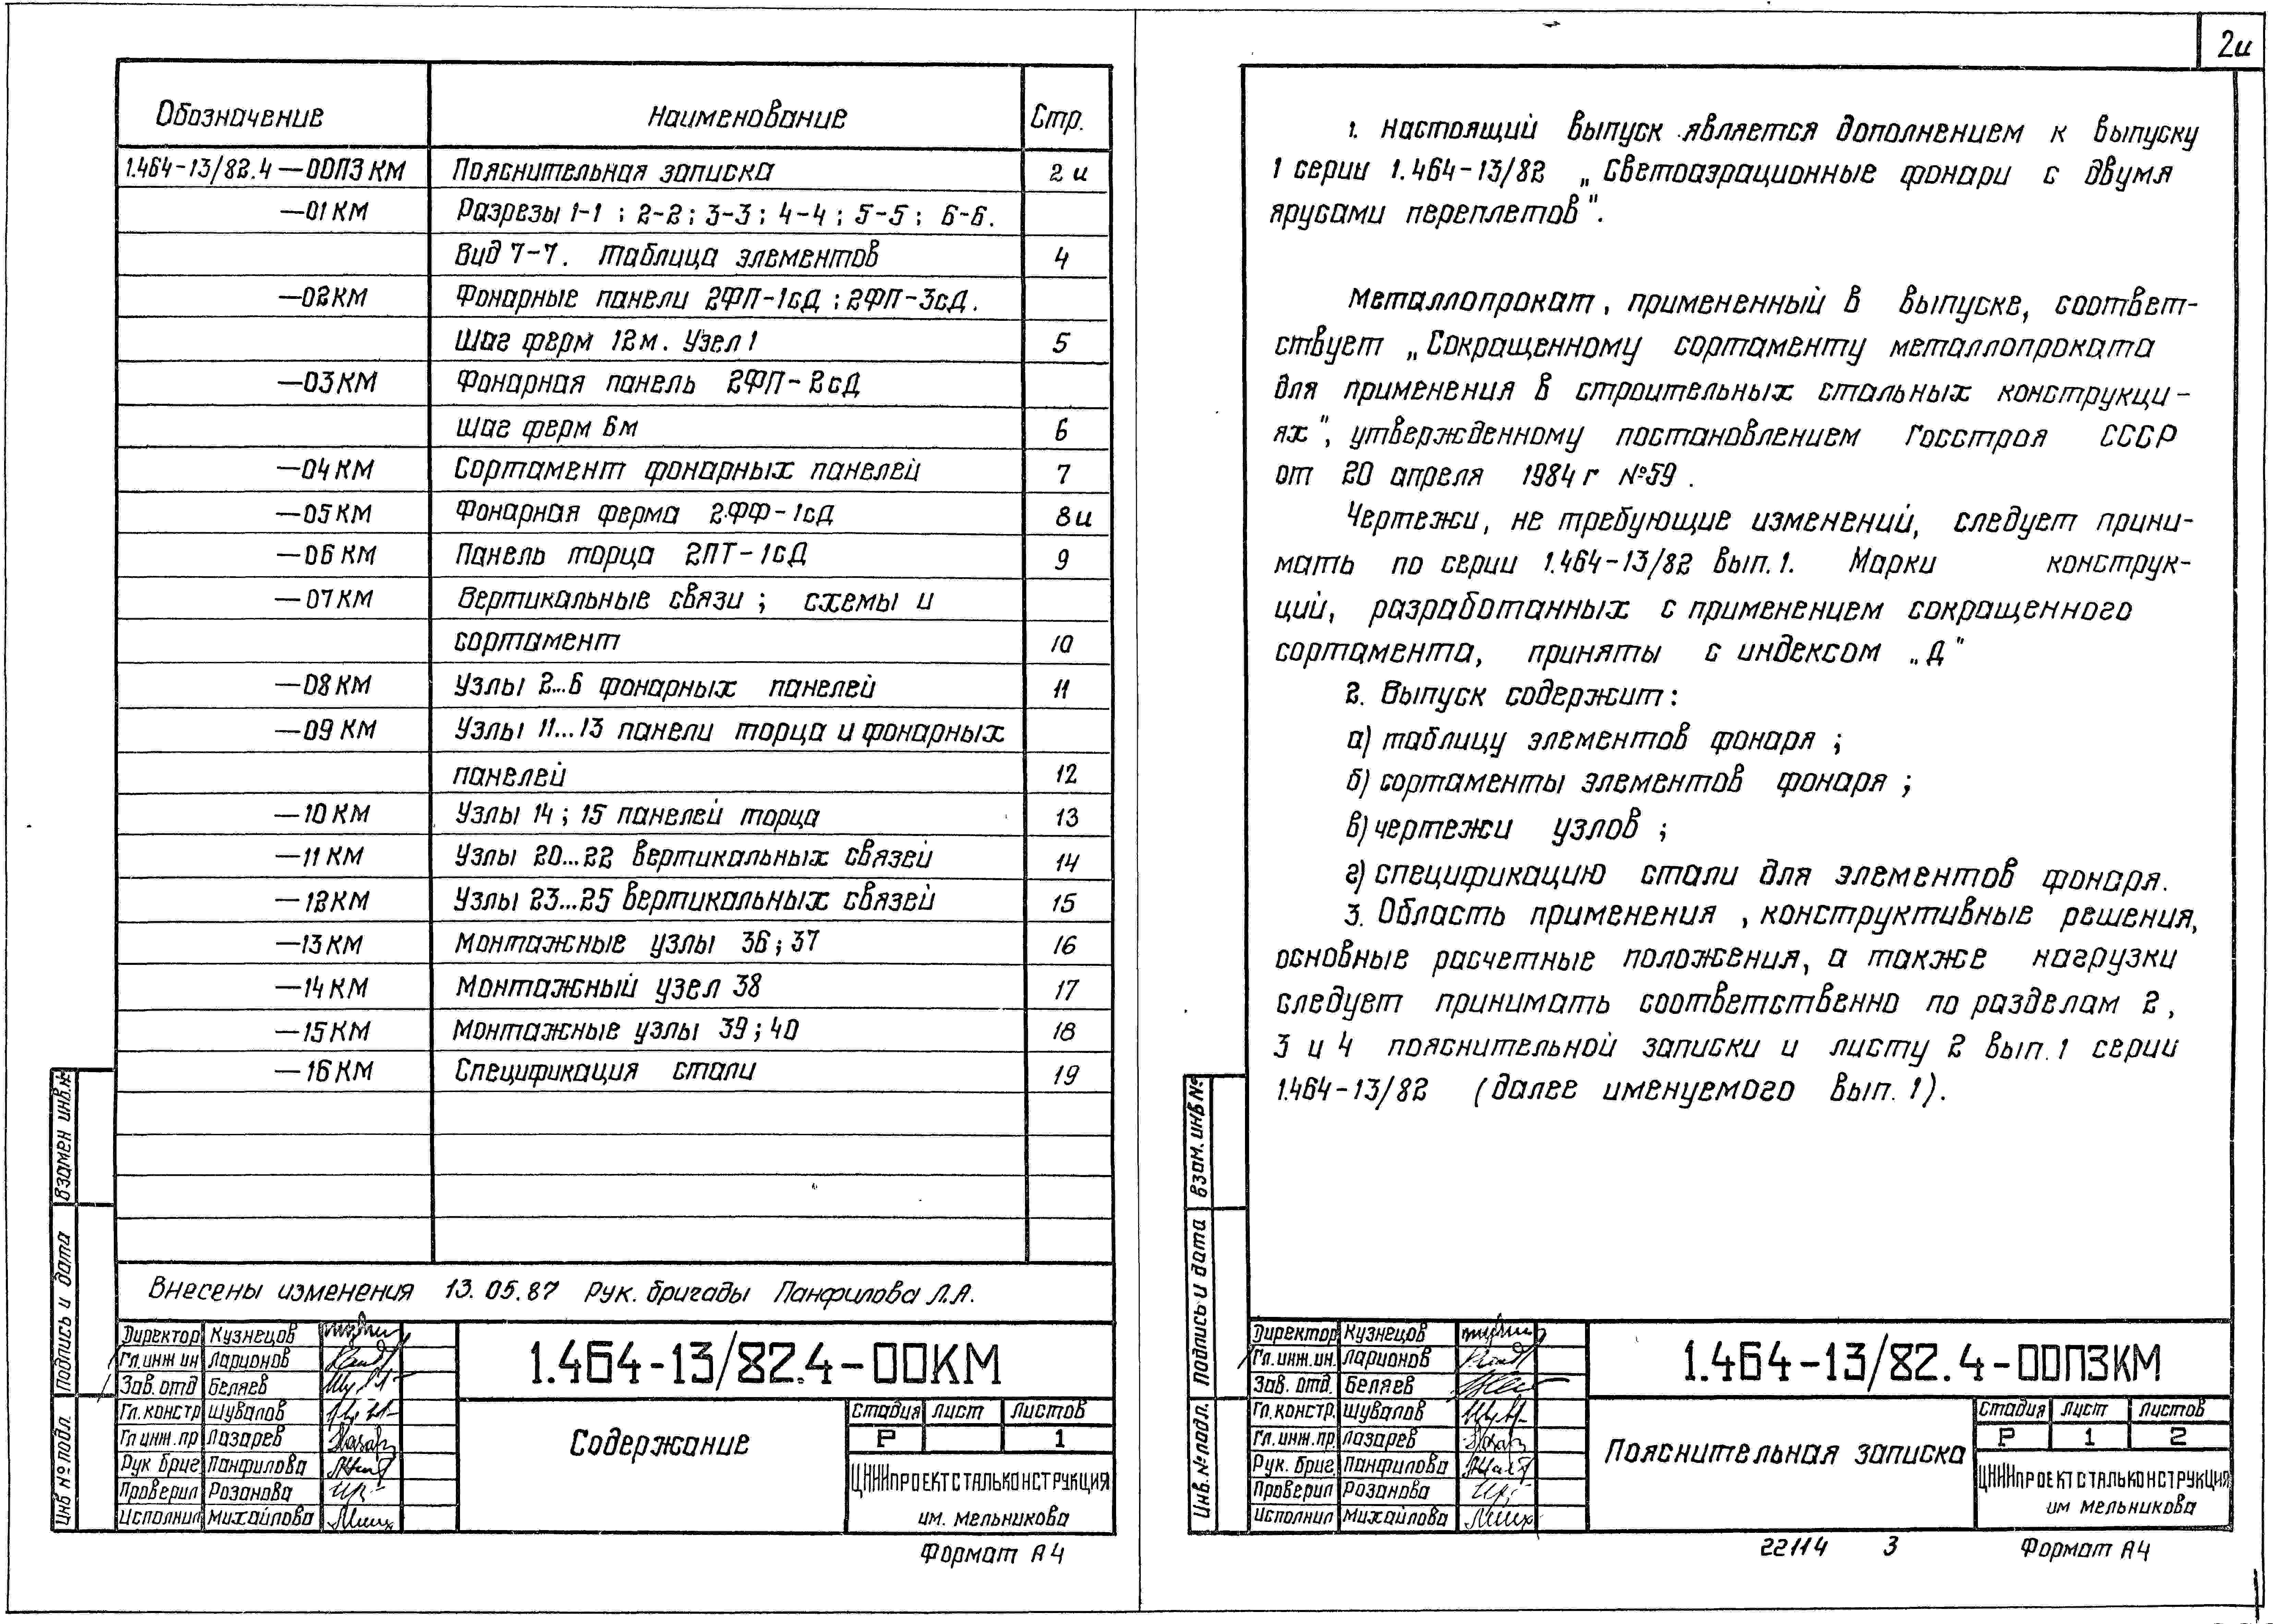 Обозначение Наименование Стр.
1.464-13/82.4-00ПЗ КМ Пояснительная записка 2и
-01 КМ Разрезы 1-1; 2-2; 3-3; 4-4; 5-5; 6-6.
Вид 7-7. Таблица элементов 4
-02 КМ Фонарные панели 2ФП-1сД; 2ФП-3сД.
Шаг ферм 12м. Узел 1 5
-03 КМ Фонарная панель 2ФП-2сД
Шаг ферм 6м 6
-04 КМ Сортамент фонарных панелей 7
-05 КМ Фонарная ферма 2ФФ-1сД 8и
-06 КМ Панель торца 2ПТ-1сД 9
-07 КМ Вертикальные связи; схемы и
сортамент 10
-08 КМ Узлы 2...6 фонарных панелей 11
-09 КМ Узлы 11...13 панели торца и фонарных
панелей 12
-10 КМ Узлы 14; 15 панелей торца 13
-11 КМ Узлы 20...22 вертикальных связей 14
-12 КМ Узлы 23...25 вертикальных связей 15
-13 КМ Монтажные узлы 36; 37 16
-14 КМ Монтажный узел 38 17
-15 КМ Монтажные узлы 39; 40 18
-16 КМ Спецификация стали 19
Внесены изменения 13.05.87 Рук. бригады Панфилова Л.А.
Взамен инв.№
Подпись и дата
Инв № подл.
Директор Кузнецов
Гл.инж ин Ларионов
Зав. отд Беляев
Гл. констр Шувалов
Гл инж. пр Лазарев
Рук бриг Панфилова
Проверил Розанова
Исполнил Михайлова
1.464-13/82.4-00КМ
Содержание
Стадия Лист Листов
Р 1
ЦНИИпроектстальконструкция
им. Мельникова
Формат А4
2и
1. Настоящий выпуск является дополнением к выпуску
1 серии 1.464-13/82 „Светоаэрационные фонари с двумя
ярусами переплетов".
Металлопрокат, примененный в выпуске, соответ-
ствует „Сокращенному сортаменту металлопроката
для применения в строительных стальных конструкци-
ях", утвержденному постановлением Госстроя СССР
от 20 апреля 1984г №59.
Чертежи, не требующие изменений, следует прини-
мать по серии 1.464-13/82 вып.1. Марки конструк-
ций, разработанных с применением сокращенного
сортамента, приняты с индексом „Д"
2. Выпуск содержит:
а) таблицу элементов фонаря;
б) сортаменты элементов фонаря;
в) чертежи узлов;
г) спецификацию стали для элементов фонаря.
3. Область применения, конструктивные решения,
основные расчетные положения, а также нагрузки
следует принимать соответственно по разделам 2,
3 и 4 пояснительной записки и листу 2 вып.1 серии
1.464-13/82 (далее именуемого вып. 1).
Взам. инв №
Подпись и дата
Инв. № подл.
Директор Кузнецов
Гл. инж. ин. Ларионов
Зав. отд. Беляев
Гл. констр. Шувалов
Гл. инж. пр Лазарев
Рук. бриг. Панфилова
Проверил Розанова
Исполнил Михайлова
1.464-13/82.4-00ПЗКМ
Пояснительная записка
Стадия Лист Листов
Р 1 2
ЦНИИпроектстальконструкция
им Мельникова
22114 3 Формат А4